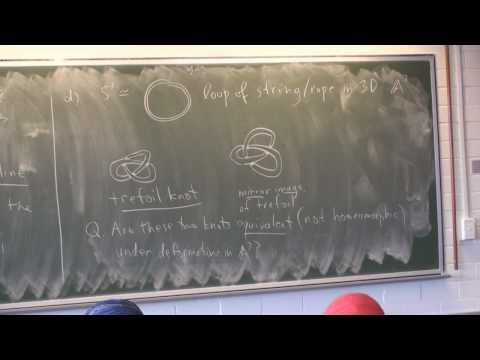 d) S¹ ≃ loop of string/rope in 3D A³
line
the
trefoil knot
mirror image
of trefoil
Q. Are these two knots equivalent (not homeomorphic)
under deformation in A³??